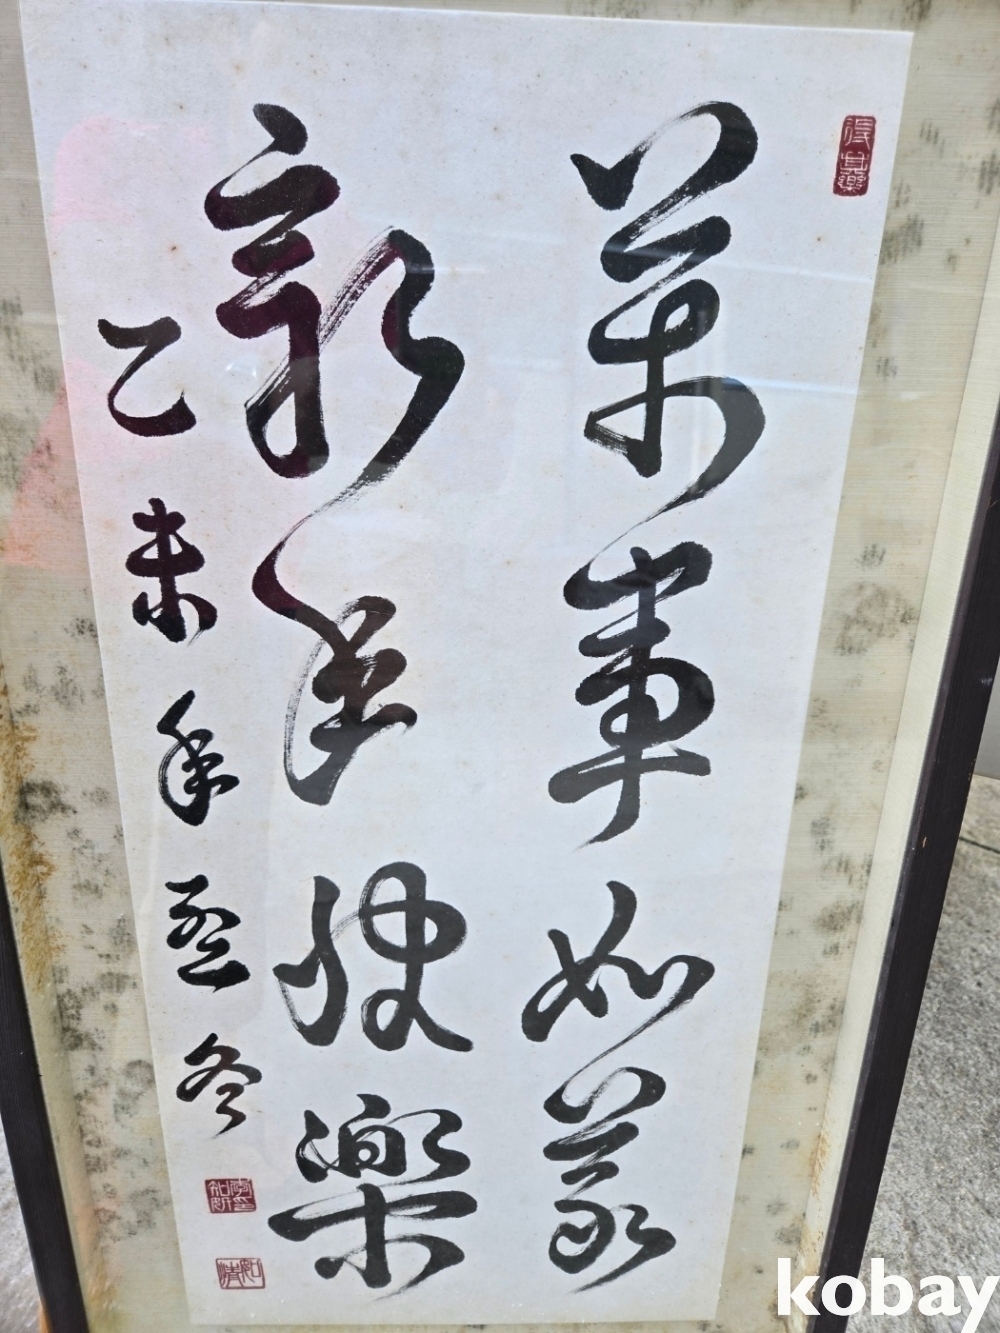 萬事如意
新年快樂
乙未年孟冬
得其樂
kobay